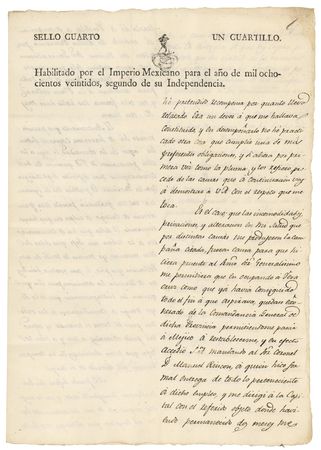 SELLO CUARTO UN CUARTILLO.
Habilitado por el Imperio Mexicano para el año de mil ocho-
cientos veintidos, segundo de su Independencia.
he pretendido recompensa por quanto llevo
relatado era un dever á que me hallava
constituida, y en desempeñarlo no he prac
ticado otra cosa que cumplir una de mis
preferentes obligaciones, y
mera vez como la pluma, y
de las causas que á continuacion voy
á demostrar á V.E. con el respeto que me
toca.
Es el caso que las incomodidades,
privaciones, y alteracion en mi salud que
por distintas causas me produjeron la cam
paña citada, fueron causa para que hi
ciera presente al Smo. Sor. Generalisimo
me permitiera que en ocupando á Vera
cruz como que ya havia conseguido
todo el fin á que aspirava, quedar
de la Comandancia General de
dicha Provincia permitiendome pasar
á Mexico á restablecerme, y en efecto
accedio S.A. mandando al Sor. Coronel
D. Manuel Rincon, á quien hice for
mal entrega de todo lo perteneciente
á dicho empleo, y me dirigi á la Capi
tal con el referido objeto donde havi
endo permanecido dos meses me